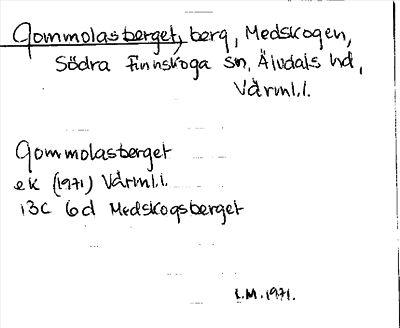 Gommolasberget, berg, Medskogen,
Södra Finnskoga sn, Älvdals hd,
Värml.l.
Gommolasberget
ek (1971) Värml.l.
13C 6d Medskogsberget
L.M. 1971.